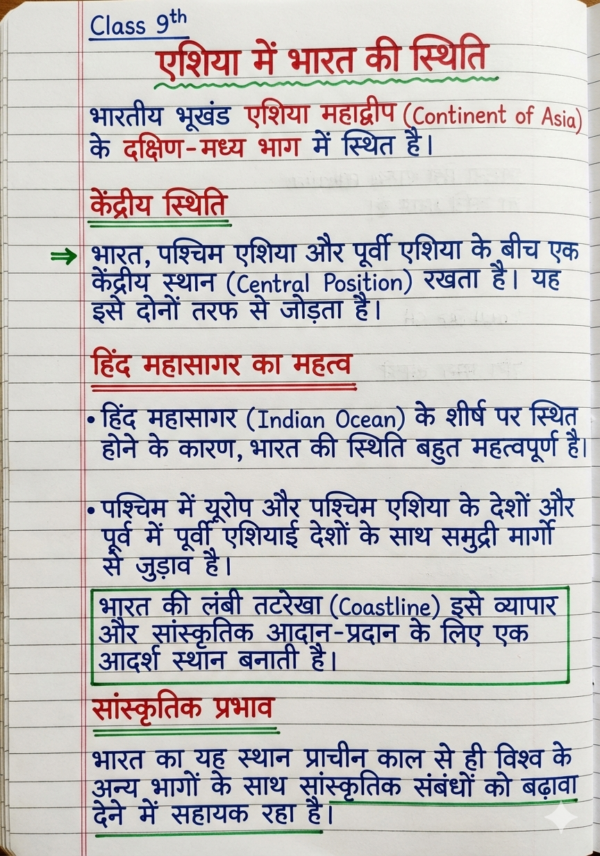 Class 9th
एशिया में भारत की स्थिति
भारतीय भूखंड एशिया महाद्वीप (Continent of Asia)
के दक्षिण-मध्य भाग में स्थित है।
केंद्रीय स्थिति
⇒ भारत, पश्चिम एशिया और पूर्वी एशिया के बीच एक
केंद्रीय स्थान (Central Position) रखता है। यह
इसे दोनों तरफ से जोड़ता है।
हिंद महासागर का महत्व
• हिंद महासागर (Indian Ocean) के शीर्ष पर स्थित
होने के कारण, भारत की स्थिति बहुत महत्वपूर्ण है।
• पश्चिम में यूरोप और पश्चिम एशिया के देशों और
पूर्व में पूर्वी एशियाई देशों के साथ समुद्री मार्गो
से जुड़ाव है।
भारत की लंबी तटरेखा (Coastline) इसे व्यापार
और सांस्कृतिक आदान-प्रदान के लिए एक
आदर्श स्थान बनाती है।
सांस्कृतिक प्रभाव
भारत का यह स्थान प्राचीन काल से ही विश्व के
अन्य भागों के साथ सांस्कृतिक संबंधों को बढ़ावा
देने में सहायक रहा है।